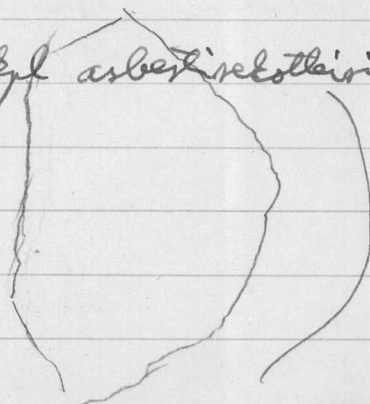 kpl asbestisekotteisi